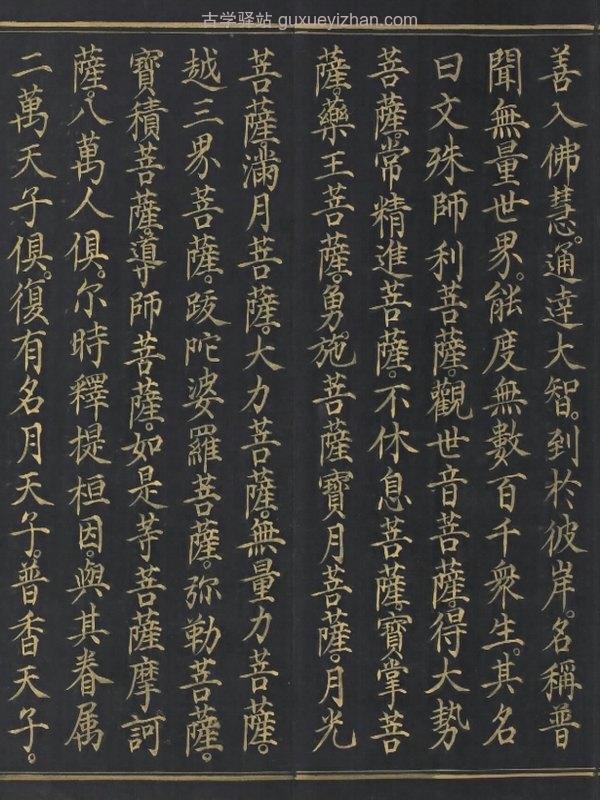 古学驿站 guxueyizhan.com
善入佛慧。通達大智。到於彼岸。名稱普
聞無量世界。能度無數百千衆生。其名
曰文殊師利菩薩。觀世音菩薩。得大勢
菩薩。常精進菩薩。不休息菩薩。寶掌菩
薩。藥王菩薩。勇。施菩薩寶月菩薩。月光
菩薩。滿月菩薩。大力菩薩。無量力菩薩。
越三界菩薩。跋陀婆羅菩薩。弥勒菩薩。
寶積菩薩。導師菩薩。如是等菩薩摩訶
薩。八萬人俱。尔時釋提桓因。與其眷属
二萬天子俱。復有名月天子。普香天子。